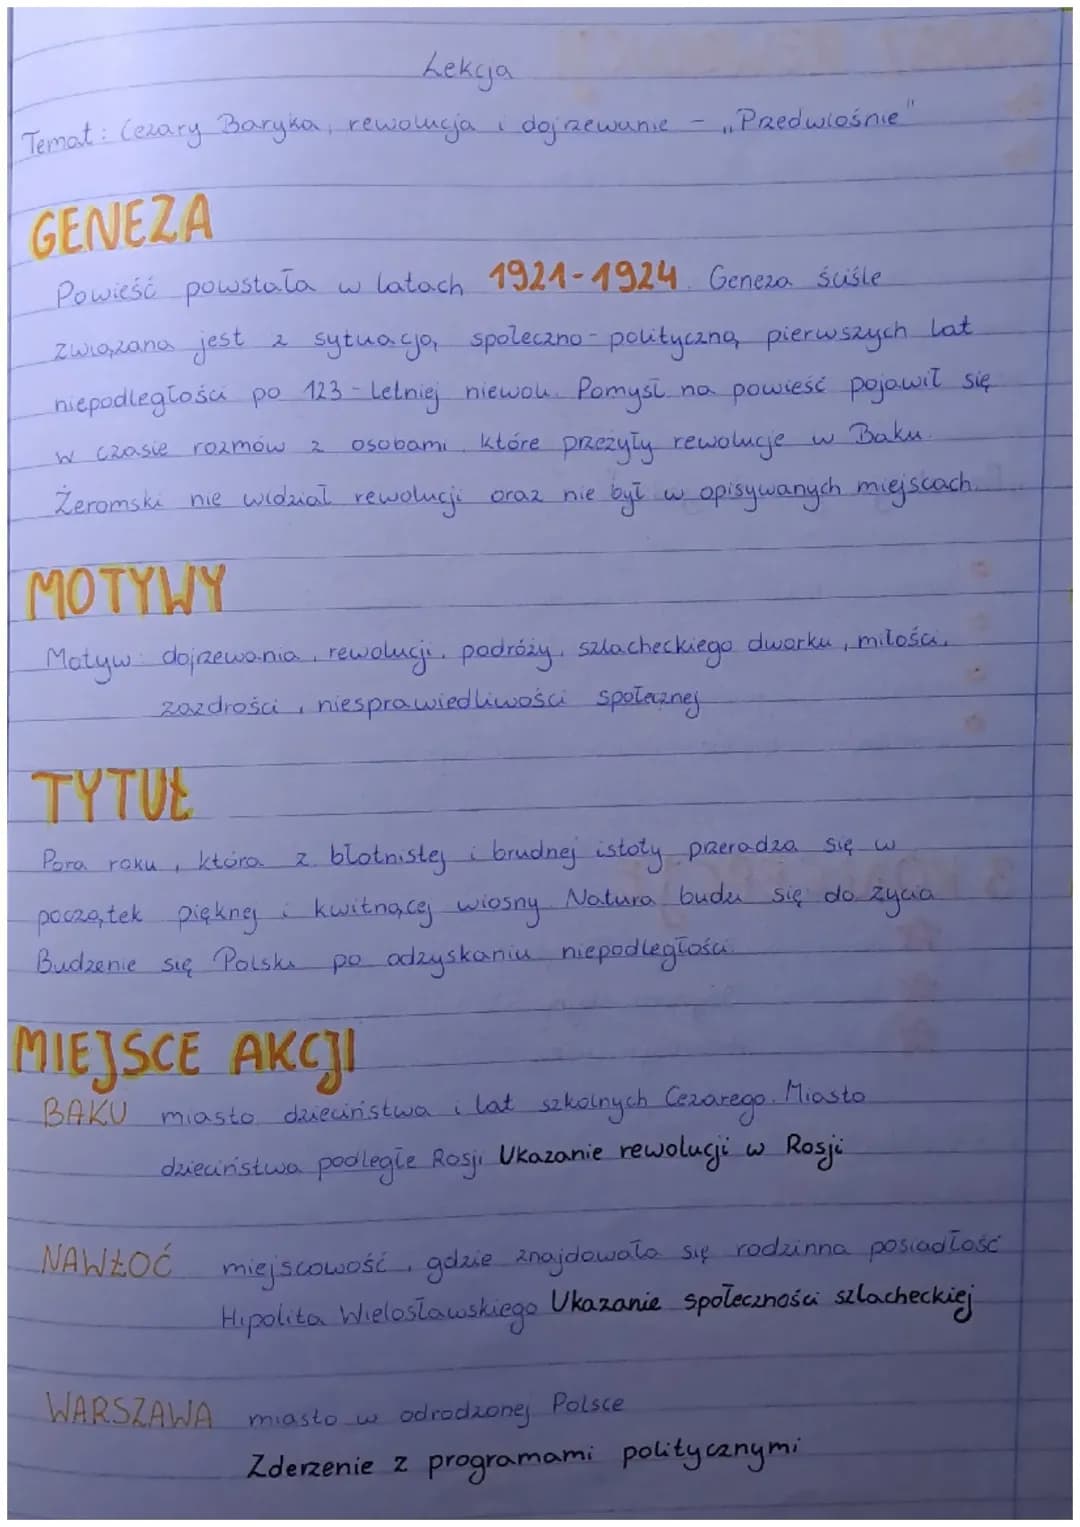 Lekcja
Temat: Cezary Baryka, rewolucja i dojrzewanie - „Przedwiośnie"
GENEZA
Powieść powstała w latach 1921-1924. Geneza ściśle
związana jest z sytuacją społeczno-polityczną pierwszych lat
niepodległości po 123-letniej niewoli. Pomysł na powieść pojawił się
w czasie rozmów z osobami, które przeżyły rewolucje w Baku.
Żeromski nie widział rewolucji oraz nie był w opisywanych miejscach.
MOTYWY
Motyw: dojrzewania, rewolucji, podróży, szlacheckiego dworku, miłości,
zazdrości, niesprawiedliwości społecznej
TYTUŁ
Pora roku, która z błotnistej i brudnej istoty przeradza się w
początek pięknej i kwitnącej wiosny. Natura budzi się do życia
Budzenie się Polski po odzyskaniu niepodległości.
MIEJSCE AKCJI
BAKU miasto dzieciństwa i lat szkolnych Cezarego. Miasto
dzieciństwa podległe Rosji Ukazanie rewolucji w Rosji
NAWŁOĆ miejscowość, gdzie znajdowała się rodzinna posiadłość
Hipolita Wielosławskiego Ukazanie społeczności szlacheckiej
WARSZAWA miasto w odrodzonej Polsce
Zderzenie z programami politycznymi